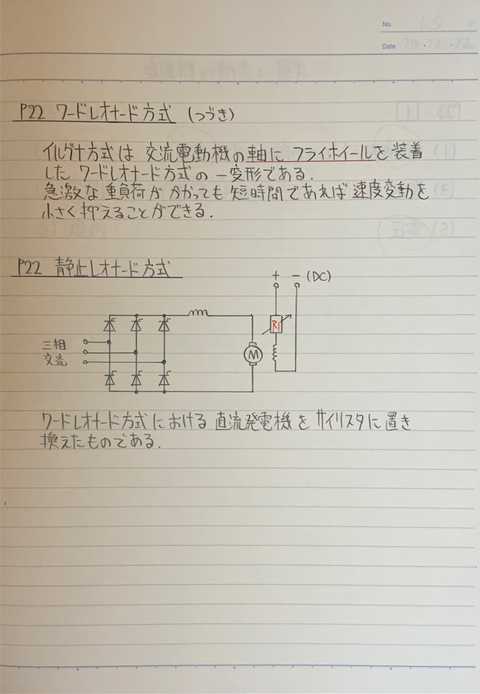 No.
Date
P22 ワードレオナード方式 (つづき)
イルグナ方式は 交流電動機の軸に フライホイールを装着
した ワードレオナード方式の 一変形である.
急激な重負荷がかかっても 短時間であれば 速度変動を
小さく抑えることができる.
P22 静止レオナード方式
+ − (DC)
Rf
三相
交流
M
ワードレオナード方式における 直流発電機を サイリスタに置き
換えたものである.